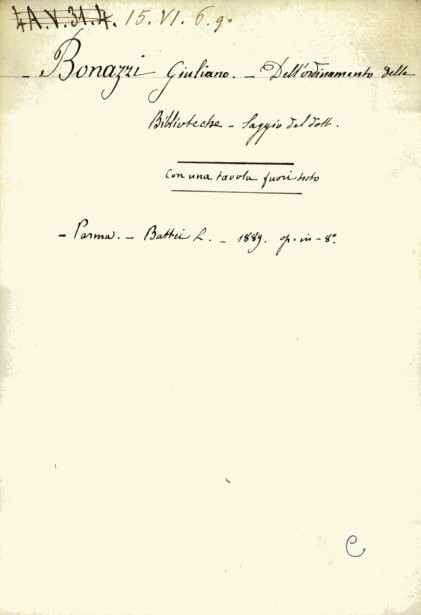 4A.V.31.4. 15. VI. 6. 9º
- Bonazzi Giuliano. - Dell'ordinamento delle
Biblioteche - Saggio del dott.
Con una tavola fuori testo
- Parma. - Battei L. - 1889. op. in - 8º.
C